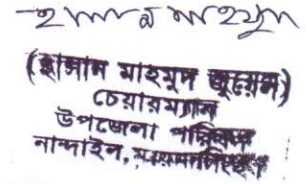 হাসান মাহমুদ
(হাসান মাহমুদ জুয়েল)
চেয়ারম্যান
উপজেলা পরিষদ
নান্দাইল, ময়মনসিংহ।